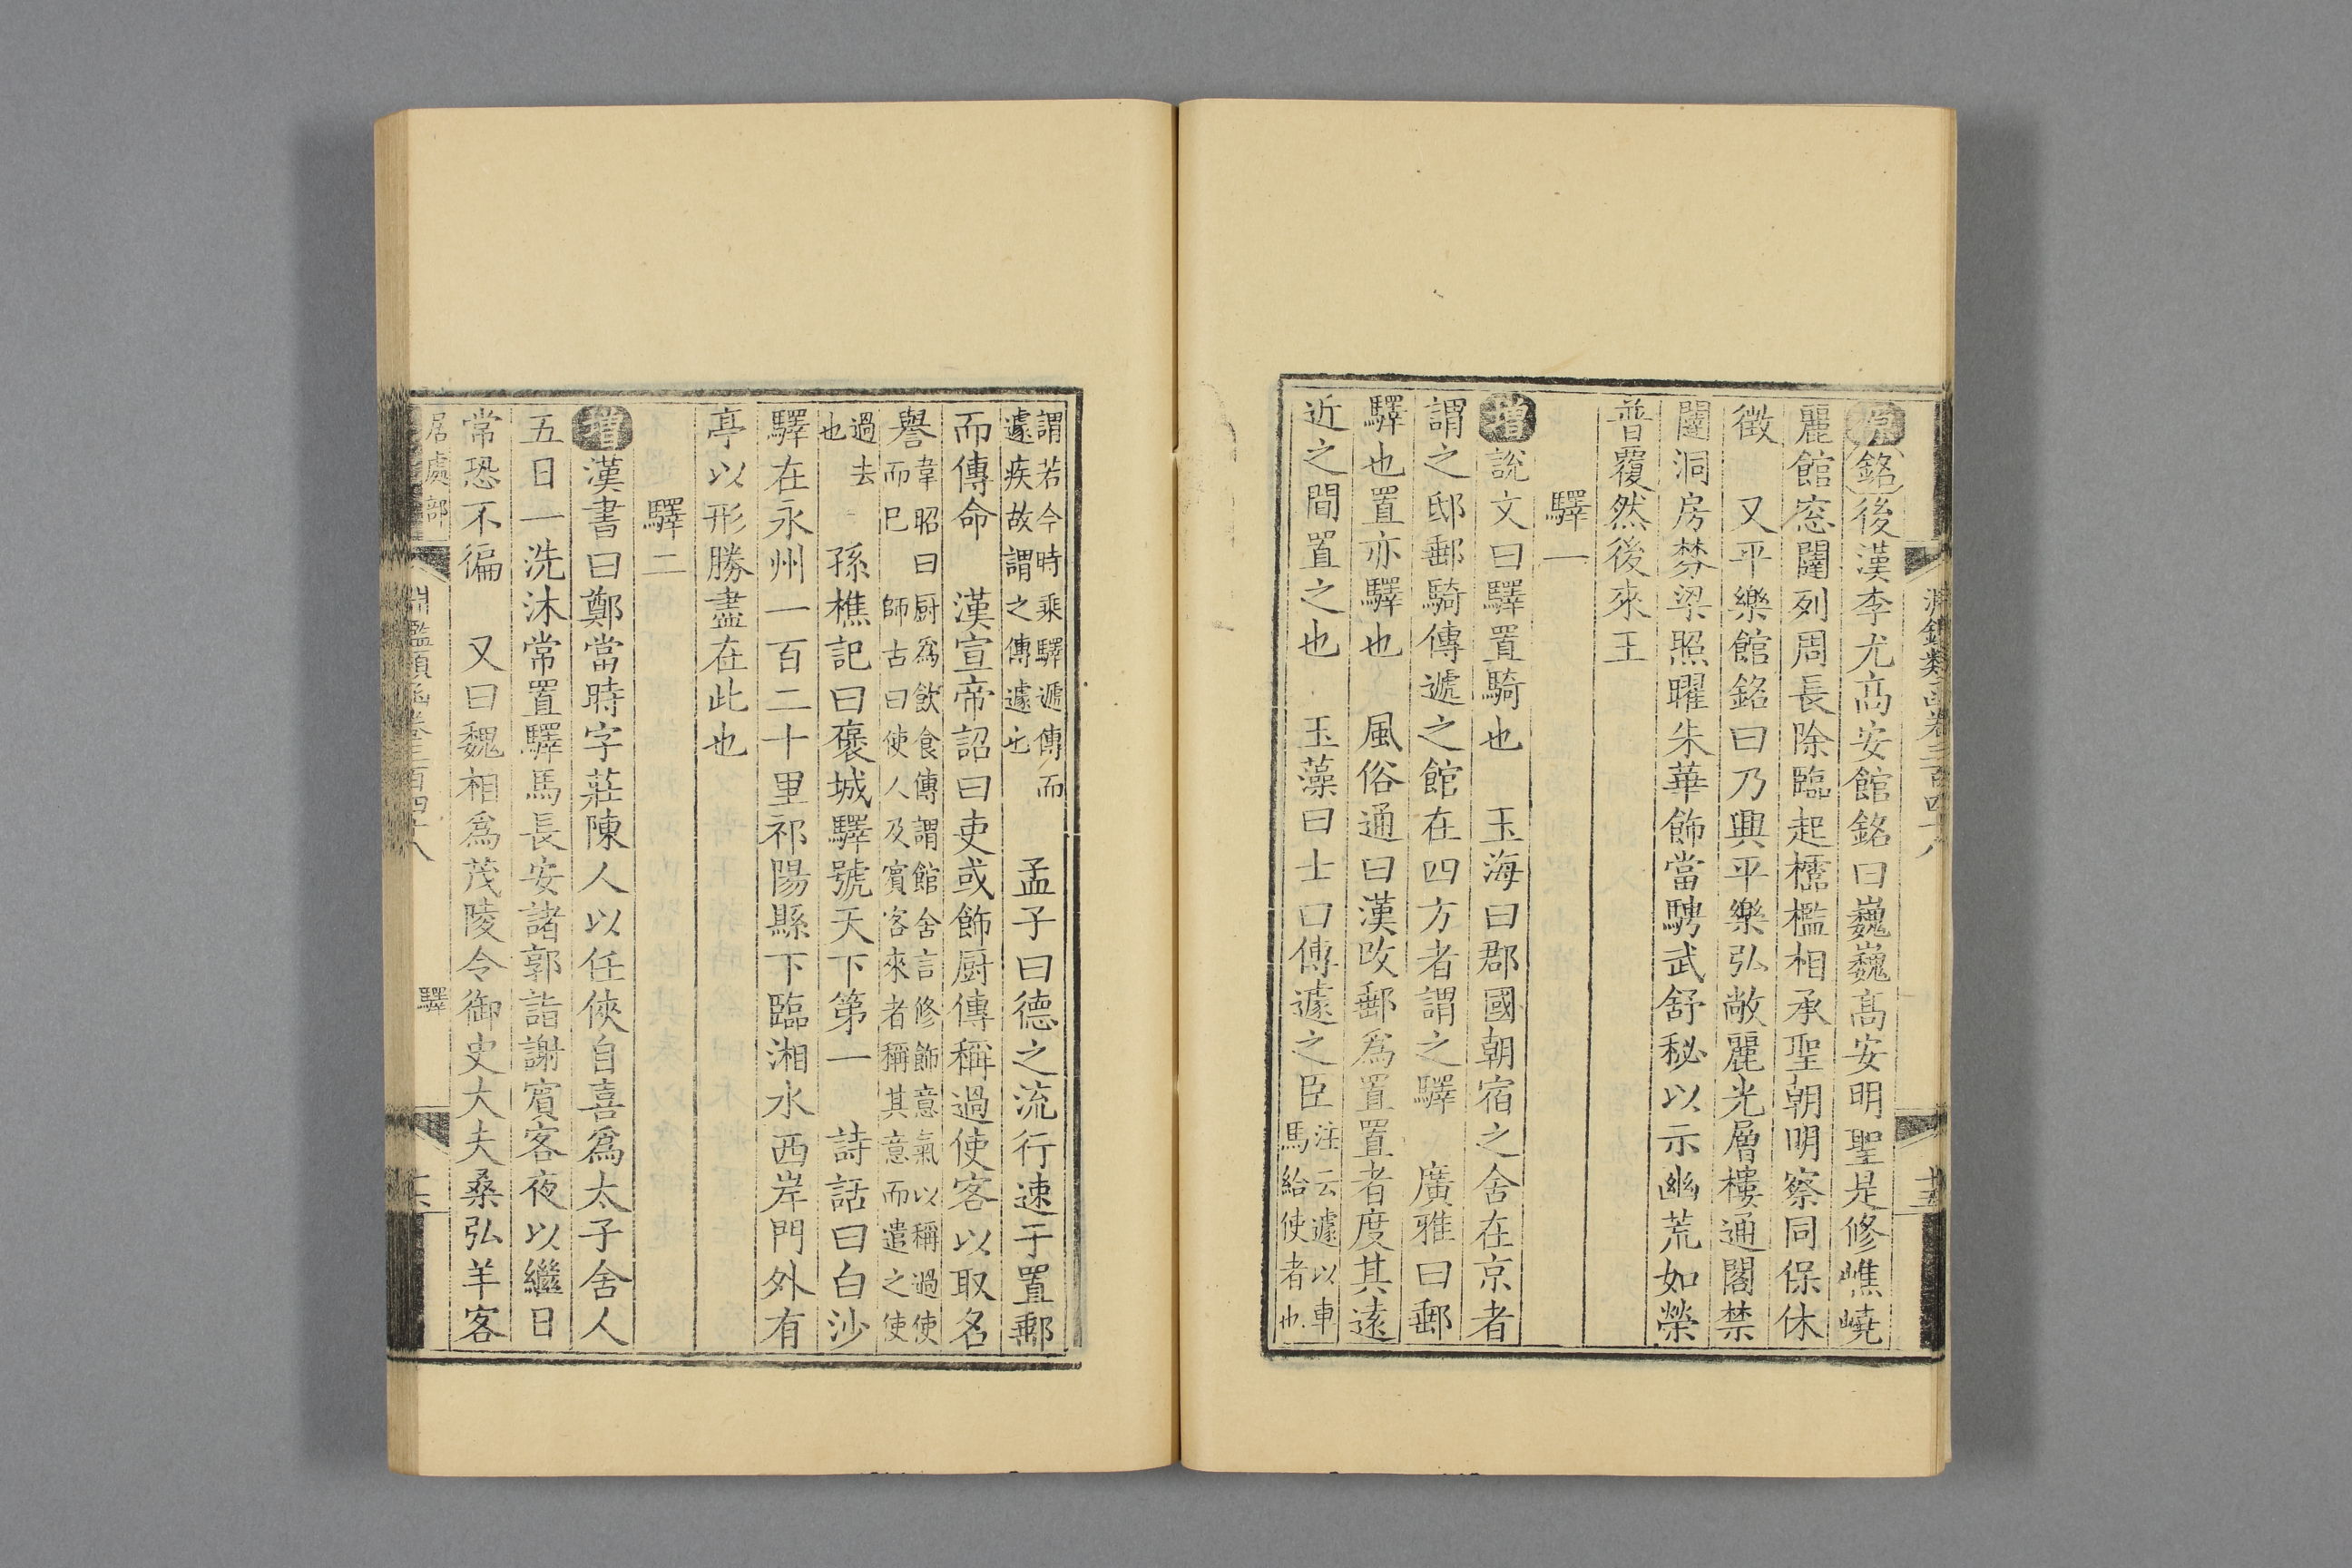 淵鑑類函卷三百四十八
十五
原銘後漢李尤高安館銘曰巍巍高安明聖是修嶕嶢
麗館窓闥列周長除臨起櫺檻相承聖朝明察同保休
徵　又平樂館銘曰乃興平樂弘敞麗光層樓通閣禁
闥洞房棼梁照曜朱華飾當騁武舒秘以示幽荒如榮
普覆然後來王
驛一
增說文曰驛置騎也　玉海曰郡國朝宿之舍在京者
謂之邸郵騎傳遞之館在四方者謂之驛　廣雅曰郵
驛也置亦驛也　風俗通曰漢改郵為置置者度其遠
近之間置之也　玉藻曰士曰傳遽之臣注云遽以車馬給使者也
謂若今時乘驛遞傳而遽疾故謂之傳遽也　孟子曰德之流行速于置郵
而傳命　漢宣帝詔曰吏或飾厨傳稱過使客以取名
譽韋昭曰厨為飲食傳謂館舍言修飾意氣以稱過使而已　師古曰使人及賓客來者稱其意而遣之使
過去也　孫樵記曰褒城驛號天下第一　詩話曰白沙
驛在永州一百二十里祁陽縣下臨湘水西岸門外有
亭以形勝盡在此也
驛二
增漢書曰鄭當時字莊陳人以任俠自喜為太子舍人
五日一洗沐常置驛馬長安諸郭詣謝賓客夜以繼日
常恐不徧　又曰魏相為茂陵令御史大夫桑弘羊客
居處部
淵鑑類函卷三百四十八
驛
十六